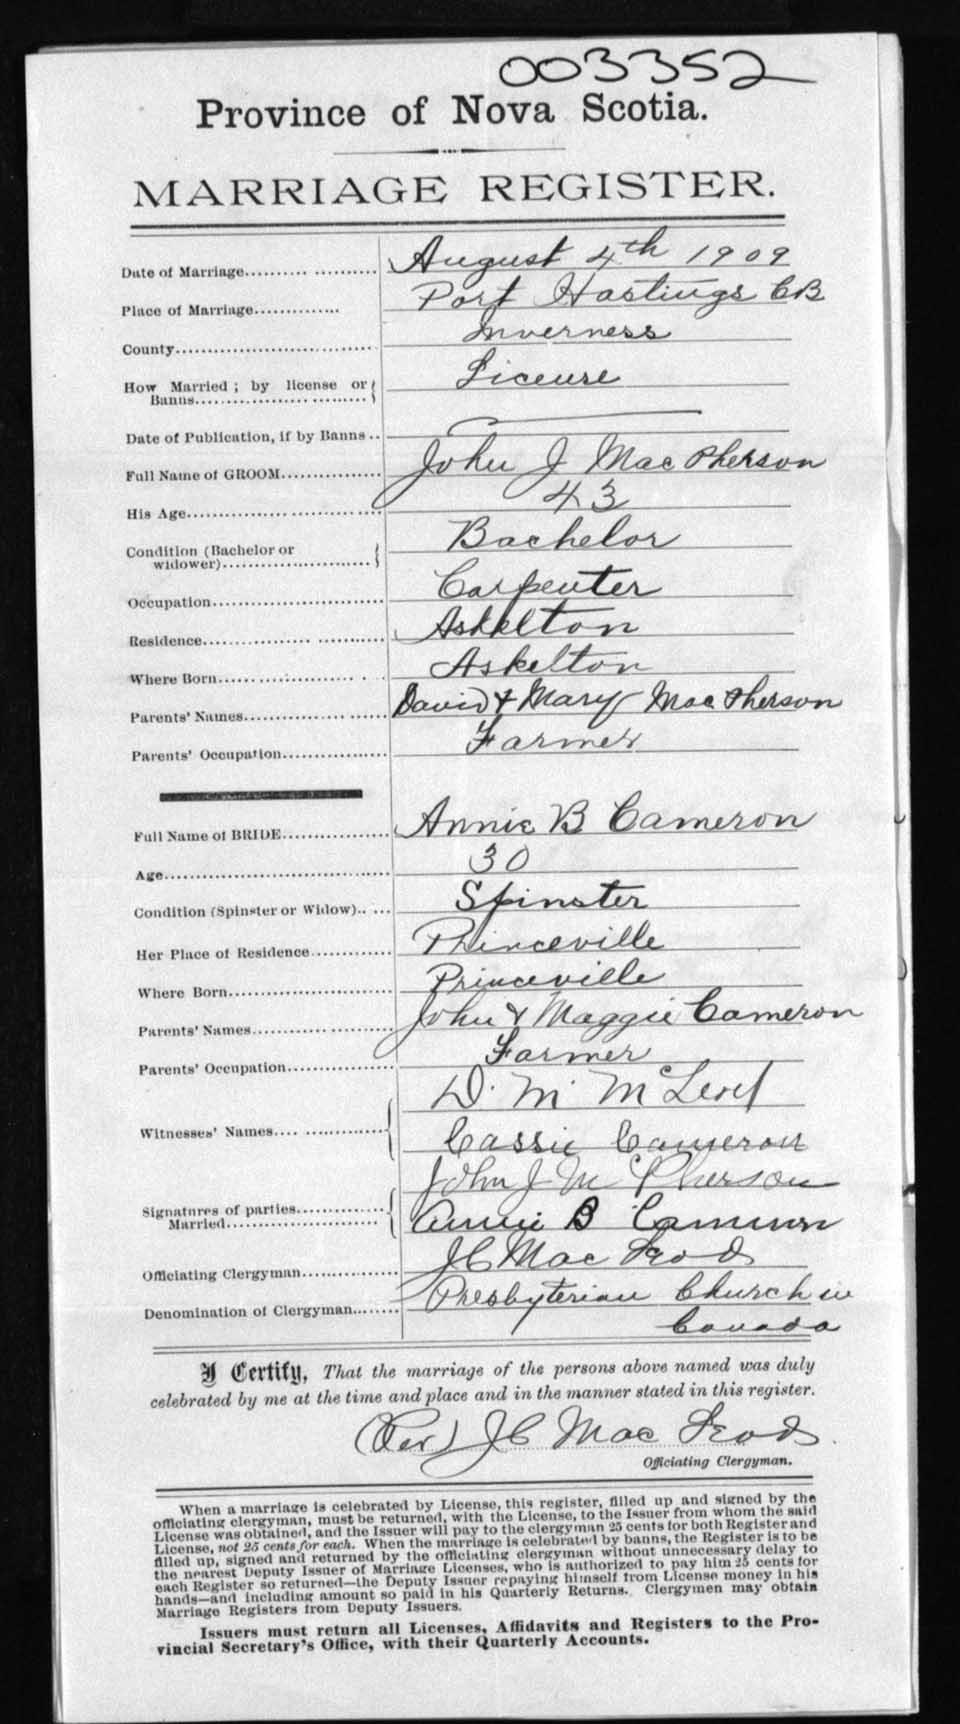 003352
Province of Nova Scotia.
MARRIAGE REGISTER.
Date of Marriage.................... August 4th 1909
Place of Marriage............. Port Hastings CB
County............................. Inverness
How Married ; by license or Banns............................. License
Date of Publication, if by Banns ..
Full Name of GROOM............... John J MacPherson
His Age............................. 43
Condition (Bachelor or widower)......................... Bachelor
Occupation......................... Carpenter
Residence.......................... Askelton
Where Born....................... Askelton
Parents' Names..................... David & Mary MacPherson
Parents' Occupation............... Farmer
Full Name of BRIDE............... Annie B Cameron
Age................................. 30
Condition (Spinster or Widow)..... Spinster
Her Place of Residence............ Princeville
Where Born....................... Princeville
Parents' Names..................... John & Maggie Cameron
Parents' Occupation............... Farmer
Witnesses' Names.................. D. M. McLeod
Cassie Cameron
Signatures of parties Married...... John J McPherson
Annie B Cameron
Officiating Clergyman.............. J C MacLeod
Denomination of Clergyman....... Presbyterian Church in
Canada
I Certify, That the marriage of the persons above named was duly
celebrated by me at the time and place and in the manner stated in this register.
(Rev) J C MacLeod.
Officiating Clergyman.
When a marriage is celebrated by License, this register, filled up and signed by the
officiating clergyman, must be returned, with the License, to the Issuer from whom the said
License was obtained, and the Issuer will pay to the clergyman 25 cents for both Register and
License, not 25 cents for each. When the marriage is celebrated by banns, the Register is to be
filled up, signed and returned by the officiating clergyman without unnecessary delay to
the nearest Deputy Issuer of Marriage Licenses, who is authorized to pay him 25 cents for
each Register so returned—the Deputy Issuer repaying himself from License money in his
hands—and including amount so paid in his Quarterly Returns. Clergymen may obtain
Marriage Registers from Deputy Issuers.
Issuers must return all Licenses, Affidavits and Registers to the Pro-
vincial Secretary's Office, with their Quarterly Accounts.